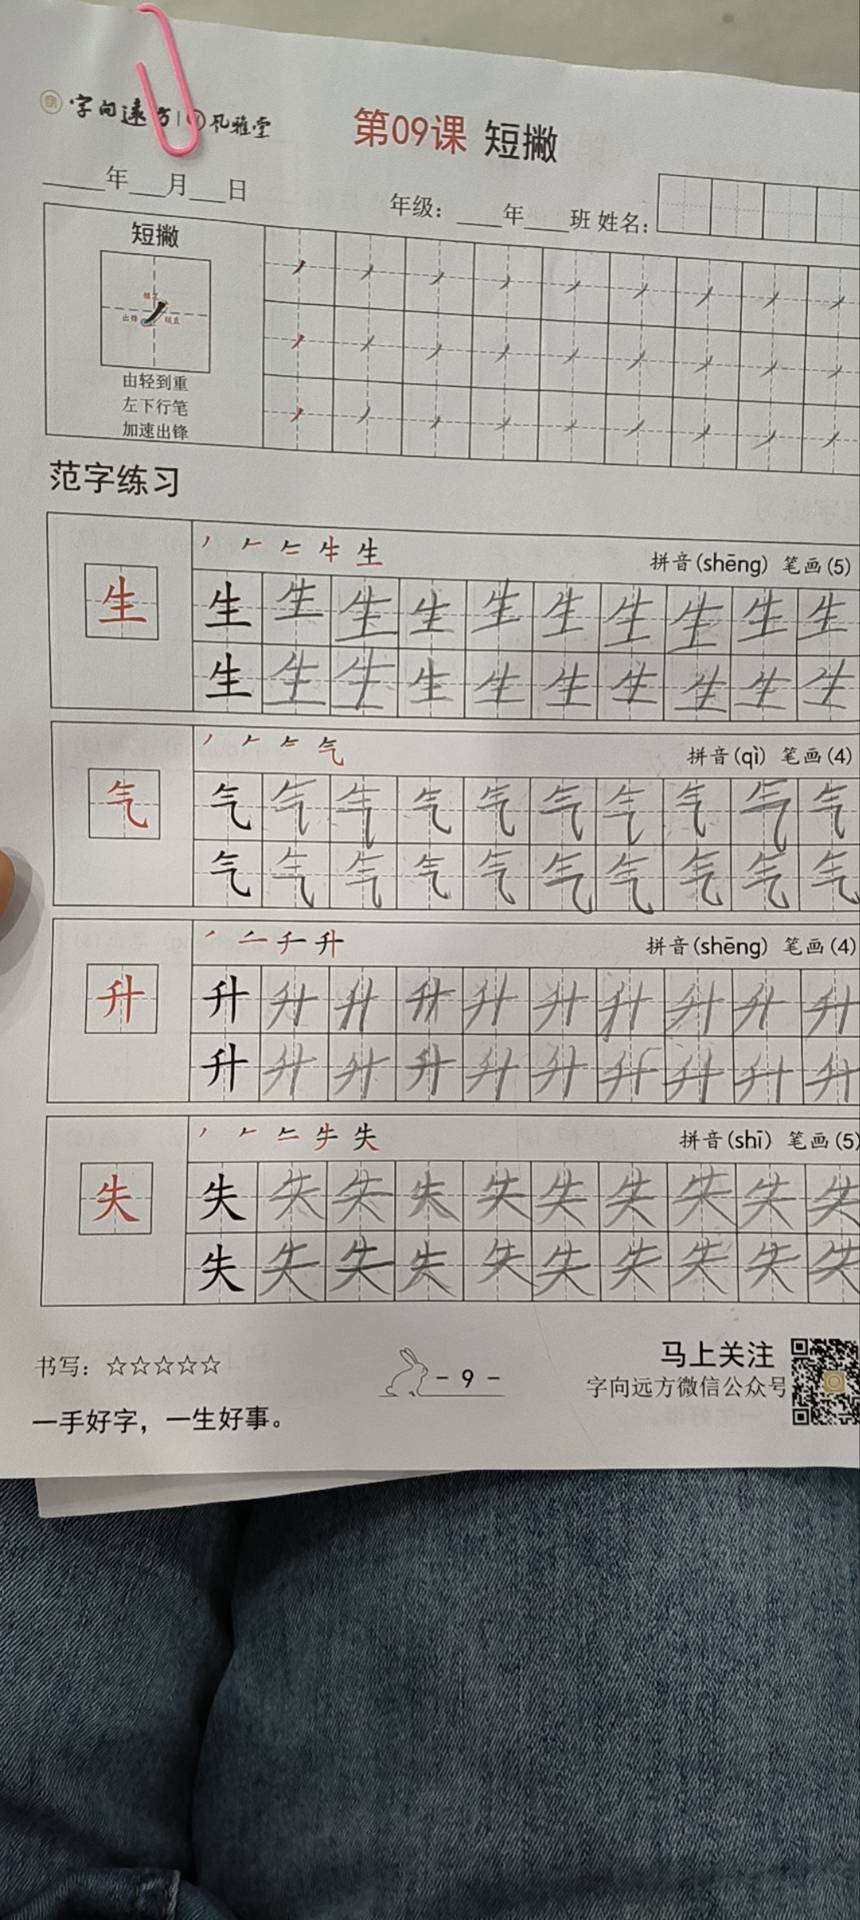 字向远方 风雅堂
第09课 短撇
____年___月___日
年级：____年____班 姓名：
短撇
由轻到重
左下行笔
加速出锋
范字练习
生 拼音(shēng) 笔画(5)
生 生 生 生 生 生 生 生 生 生 生
生 生 生 生 生 生 生 生 生 生
气 拼音(qì) 笔画(4)
气 气 气 气 气 气 气 气 气 气 气
气 气 气 气 气 气 气 气 气 气
升 拼音(shēng) 笔画(4)
升 升 升 升 升 升 升 升 升 升 升
升 升 升 升 升 升 升 升 升 升
失 拼音(shī) 笔画(5)
失 失 失 失 失 失 失 失 失 失 失
失 失 失 失 失 失 失 失 失 失
书写：☆☆☆☆☆
- 9 -
马上关注
字向远方微信公众号
一手好字，一生好事。